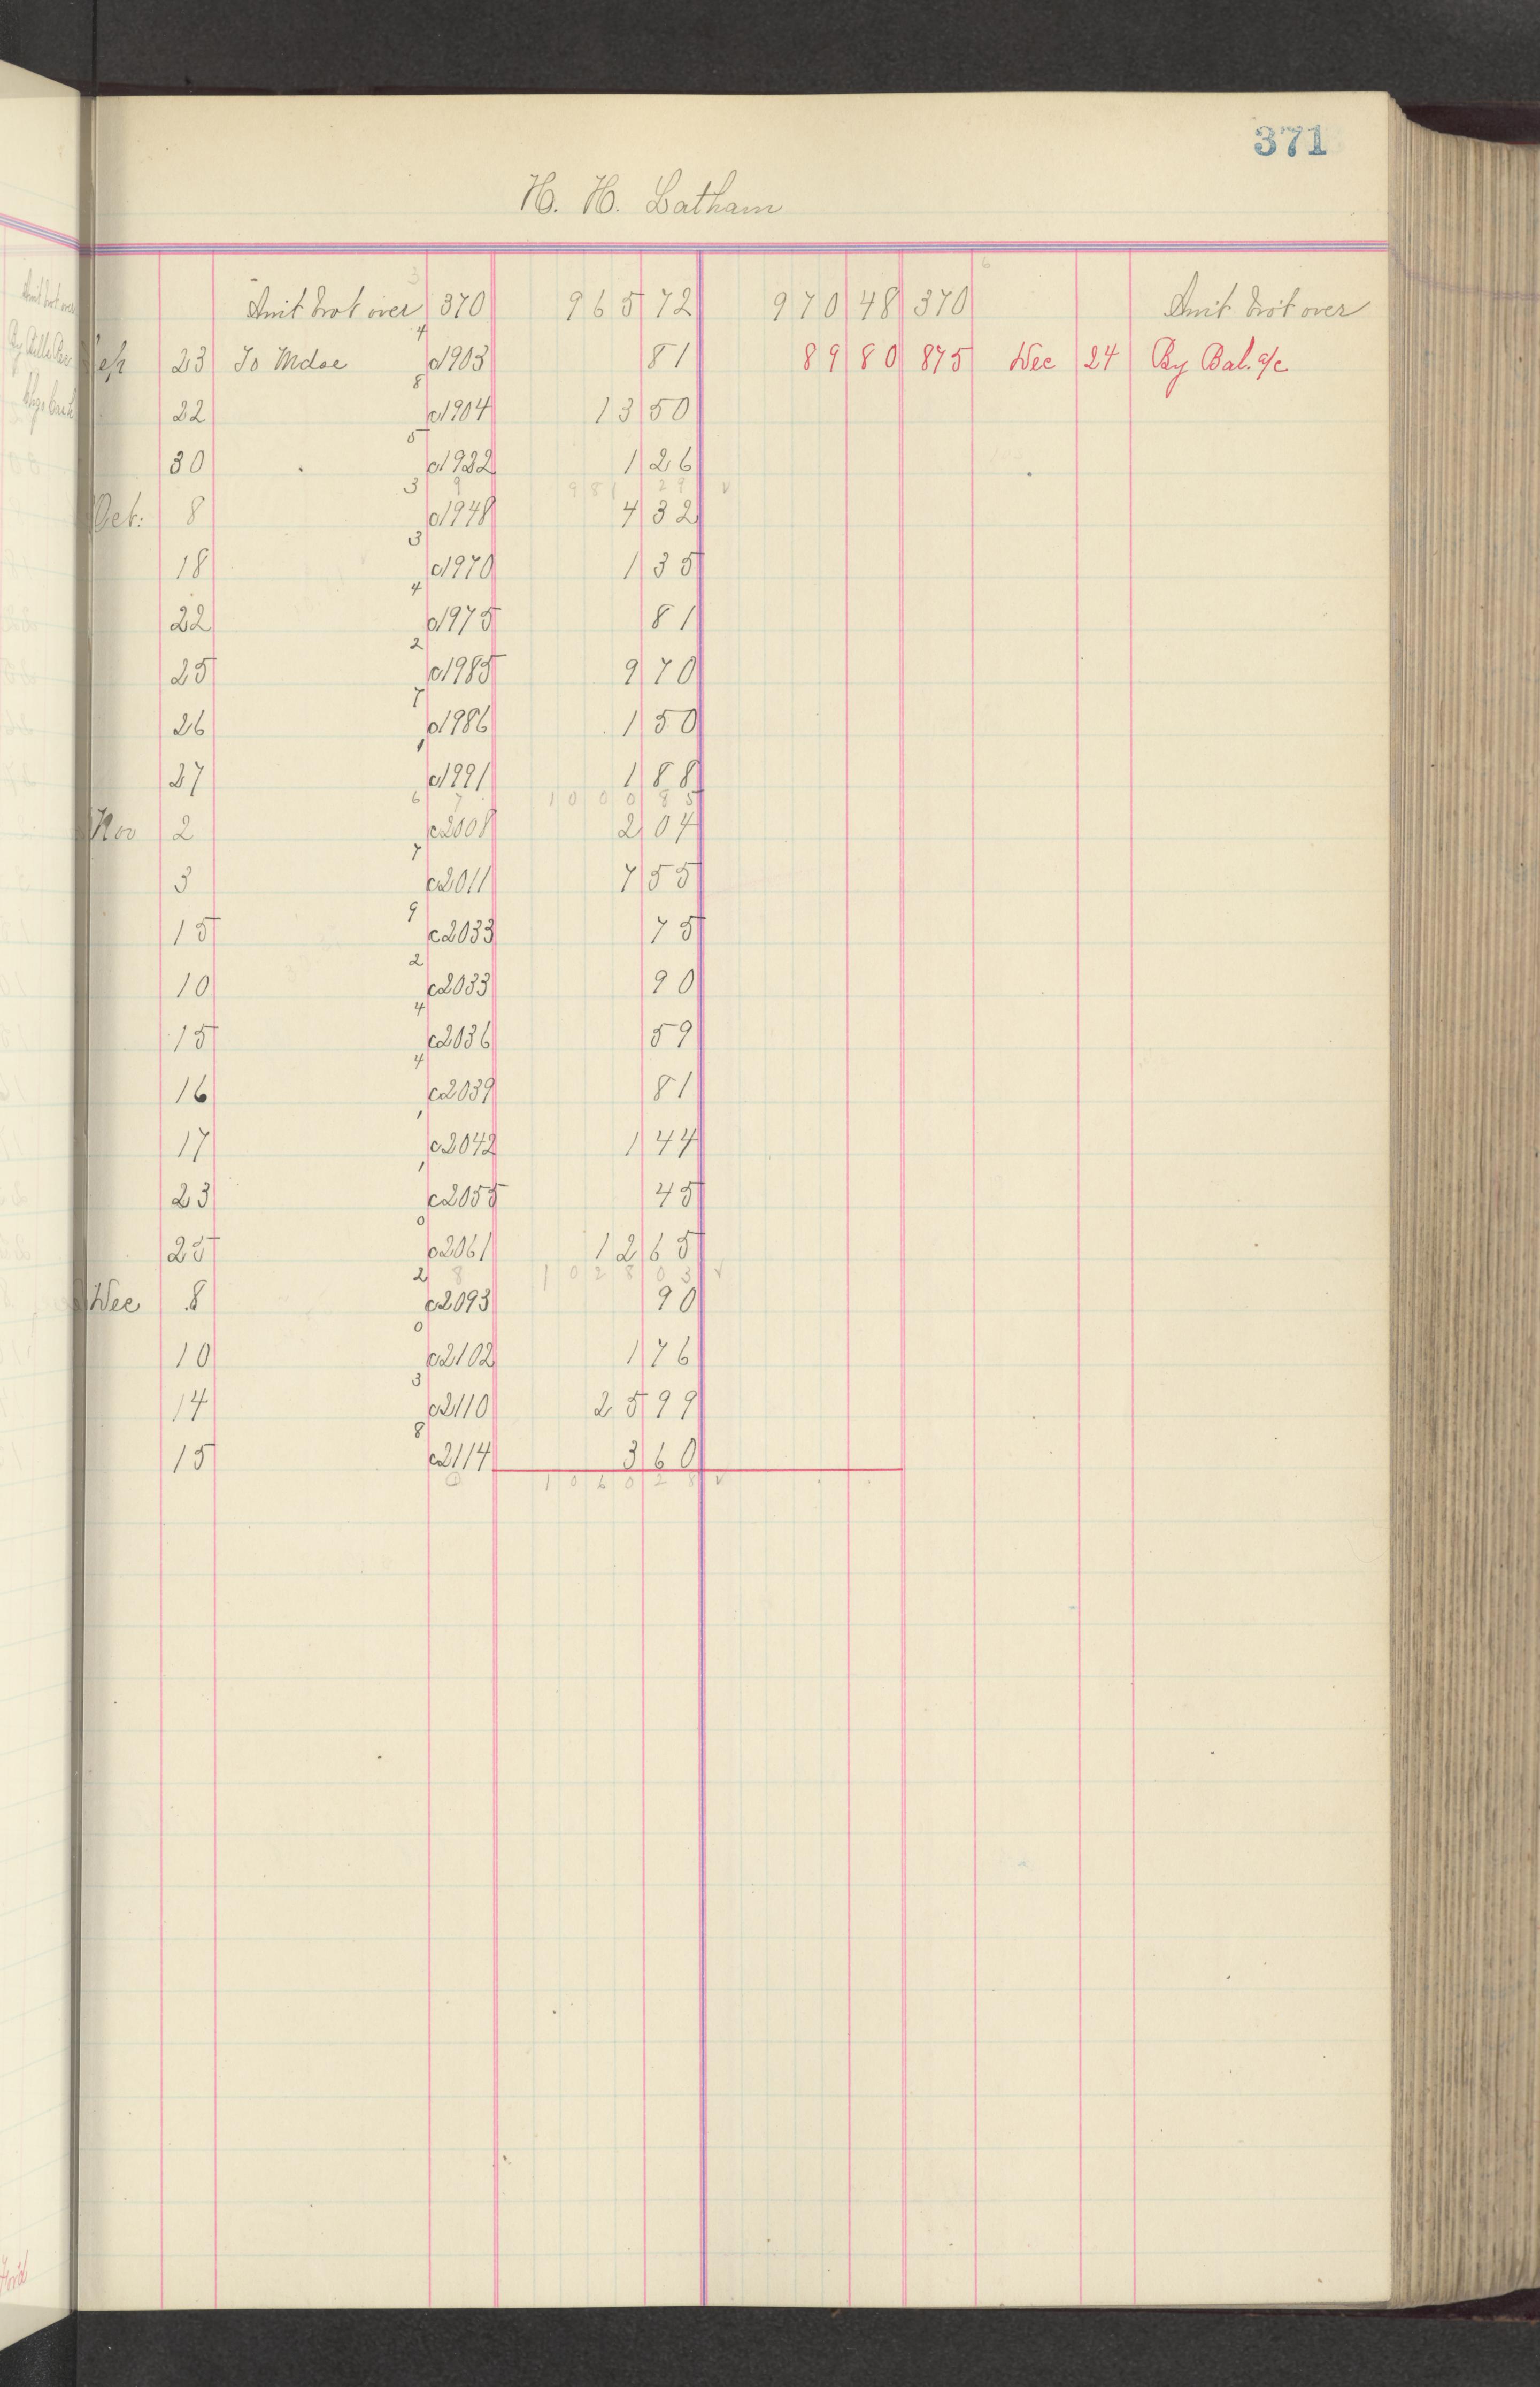 371
H. H. Latham
Amt brot over 370 965 72 970 48 370 Amt brot over
Sep 23 To Mdse c1903 81 89 80 875 Dec 24 By Bal. a/c
22 c1904 13 50
30 c1922 1 26
981 29 ✓
Oct. 8 c1948 4 32
18 c1970 1 35
22 c1975 81
25 c1985 9 70
26 c1986 1 50
27 c1991 1 88
1000 85
Nov 2 c2008 2 04
3 c2011 7 55
15 c2033 75
10 c2033 90
15 c2036 59
16 c2039 81
17 c2042 1 44
23 c2055 45
25 c2061 12 65
1028 03 ✓
Dec 8 c2093 90
10 c2102 1 76
14 c2110 25 99
15 c2114 3 60
1060 28 ✓